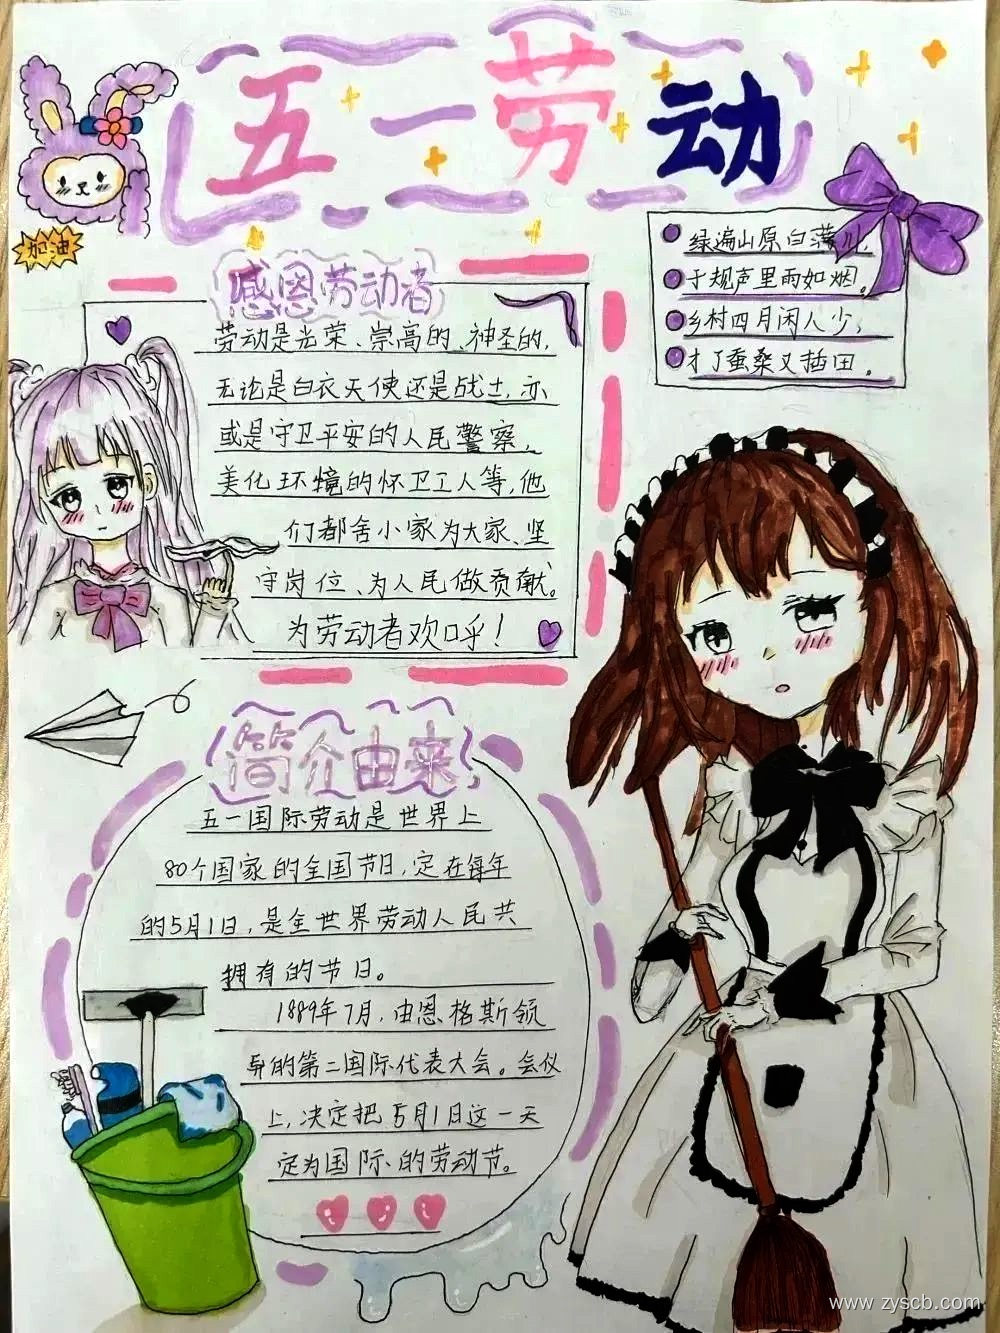 五一劳动
加油
绿遍山原白满川,
子规声里雨如烟。
乡村四月闲人少,
才了蚕桑又插田。
感恩劳动者
劳动是光荣、崇高的、神圣的,
无论是白衣天使还是战士,亦
或是守卫平安的人民警察,
美化环境的怀卫工人等,他
们都舍小家为大家、坚
守岗位、为人民做贡献。
为劳动者欢呼!
简介由来
五一国际劳动是世界上
80个国家的全国节日,定在每年
的5月1日,是全世界劳动人民共
拥有的节日。
1889年7月,由恩格斯领
导的第二国际代表大会。会议
上,决定把5月1日这一天
定为国际的劳动节。
www.zyscb.com